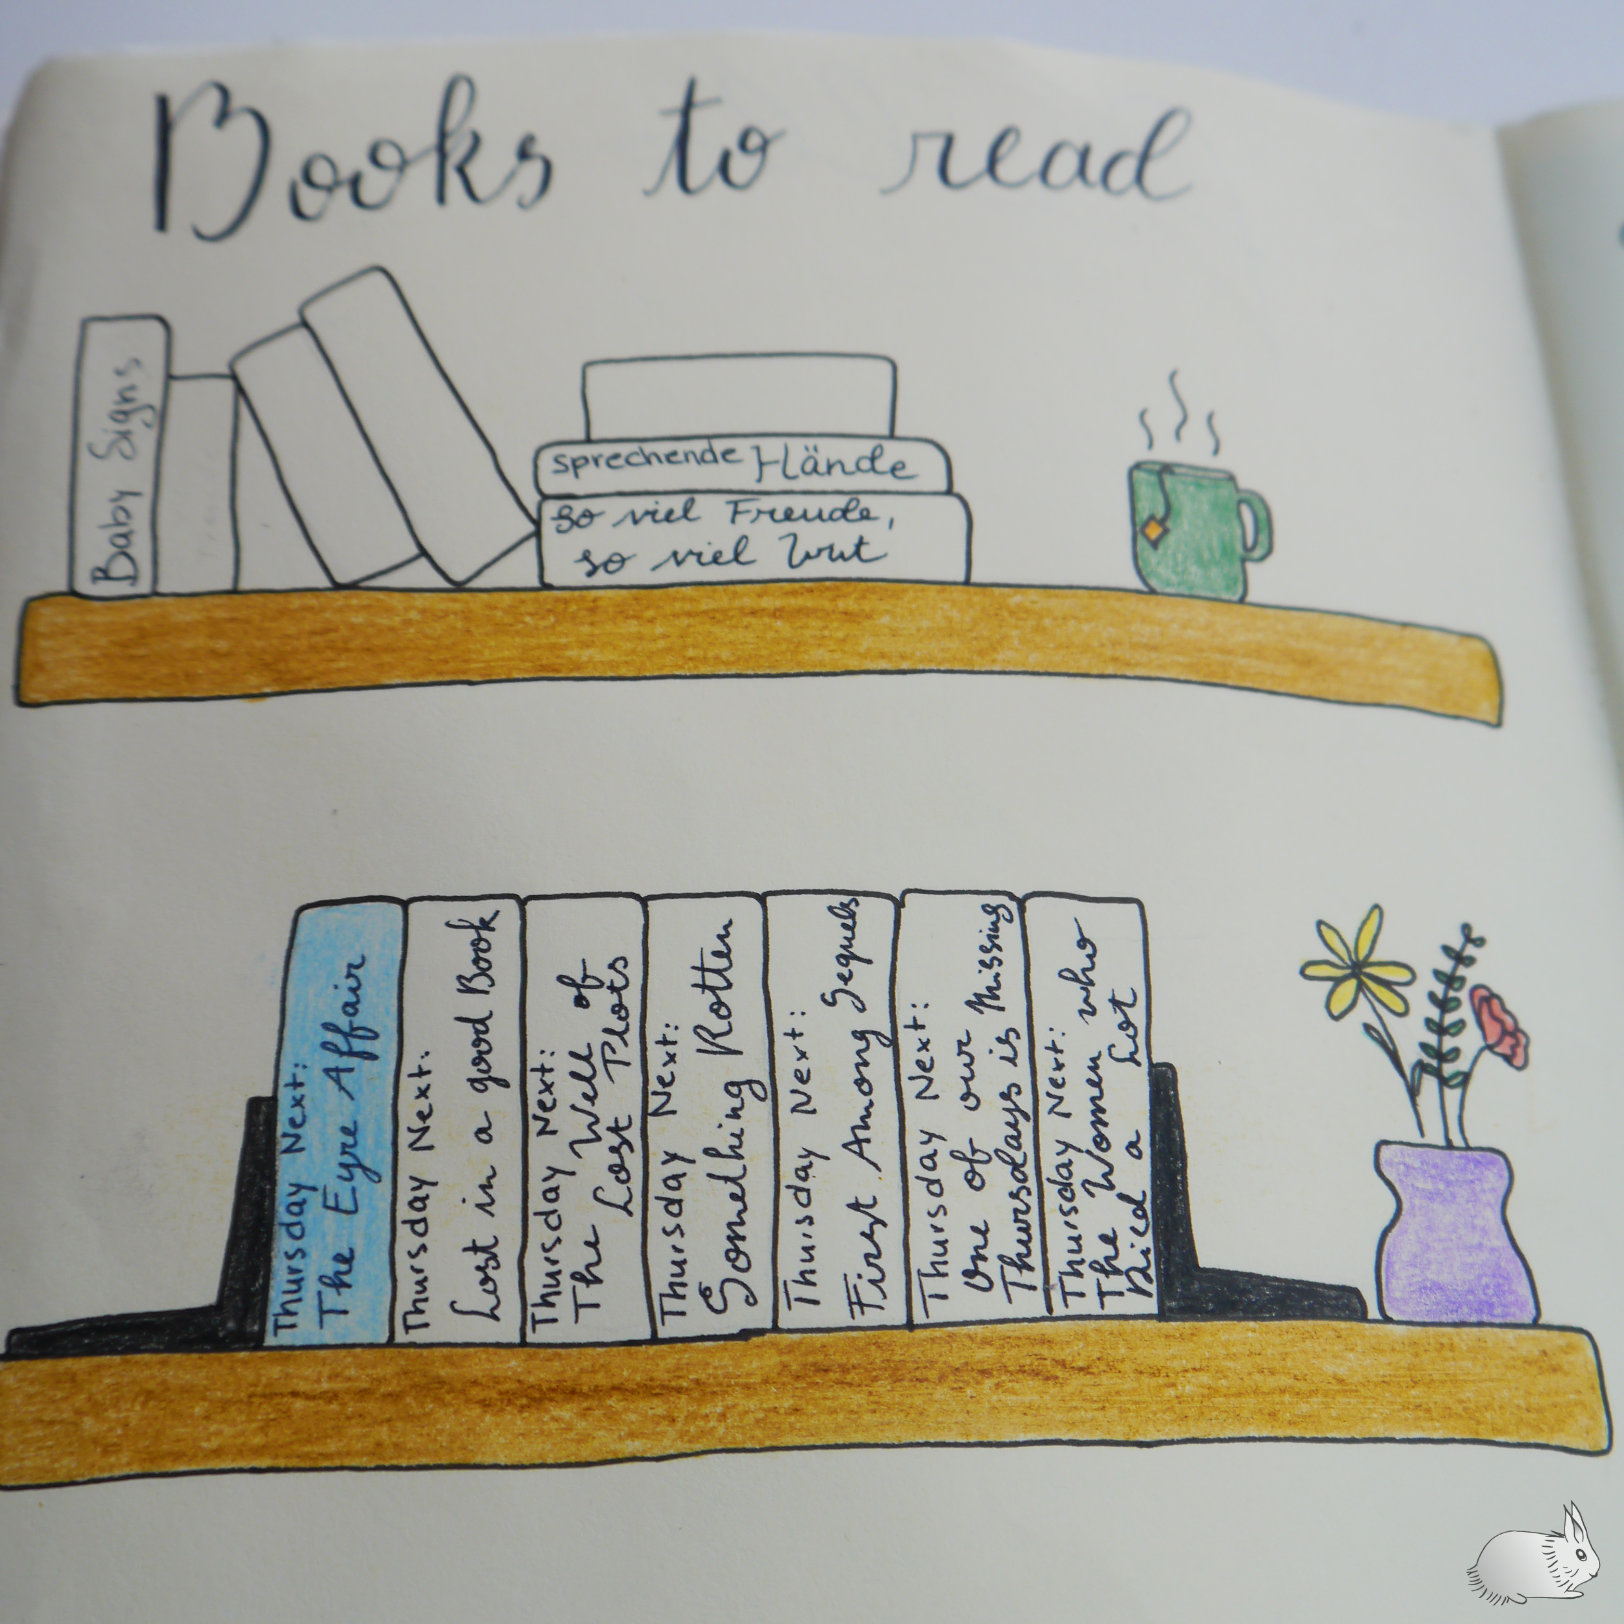 Books to read
Baby Signs
sprechende Hände
so viel Freude,
so viel Wut
Thursday Next:
The Eyre Affair
Thursday Next:
Lost in a good Book
Thursday Next:
The Well of
Lost Plots
Thursday Next:
Something Rotten
Thursday Next:
First Among Sequels
Thursday Next:
One of our
Thursdays is Missing
Thursday Next:
The Women who
Died a Lot